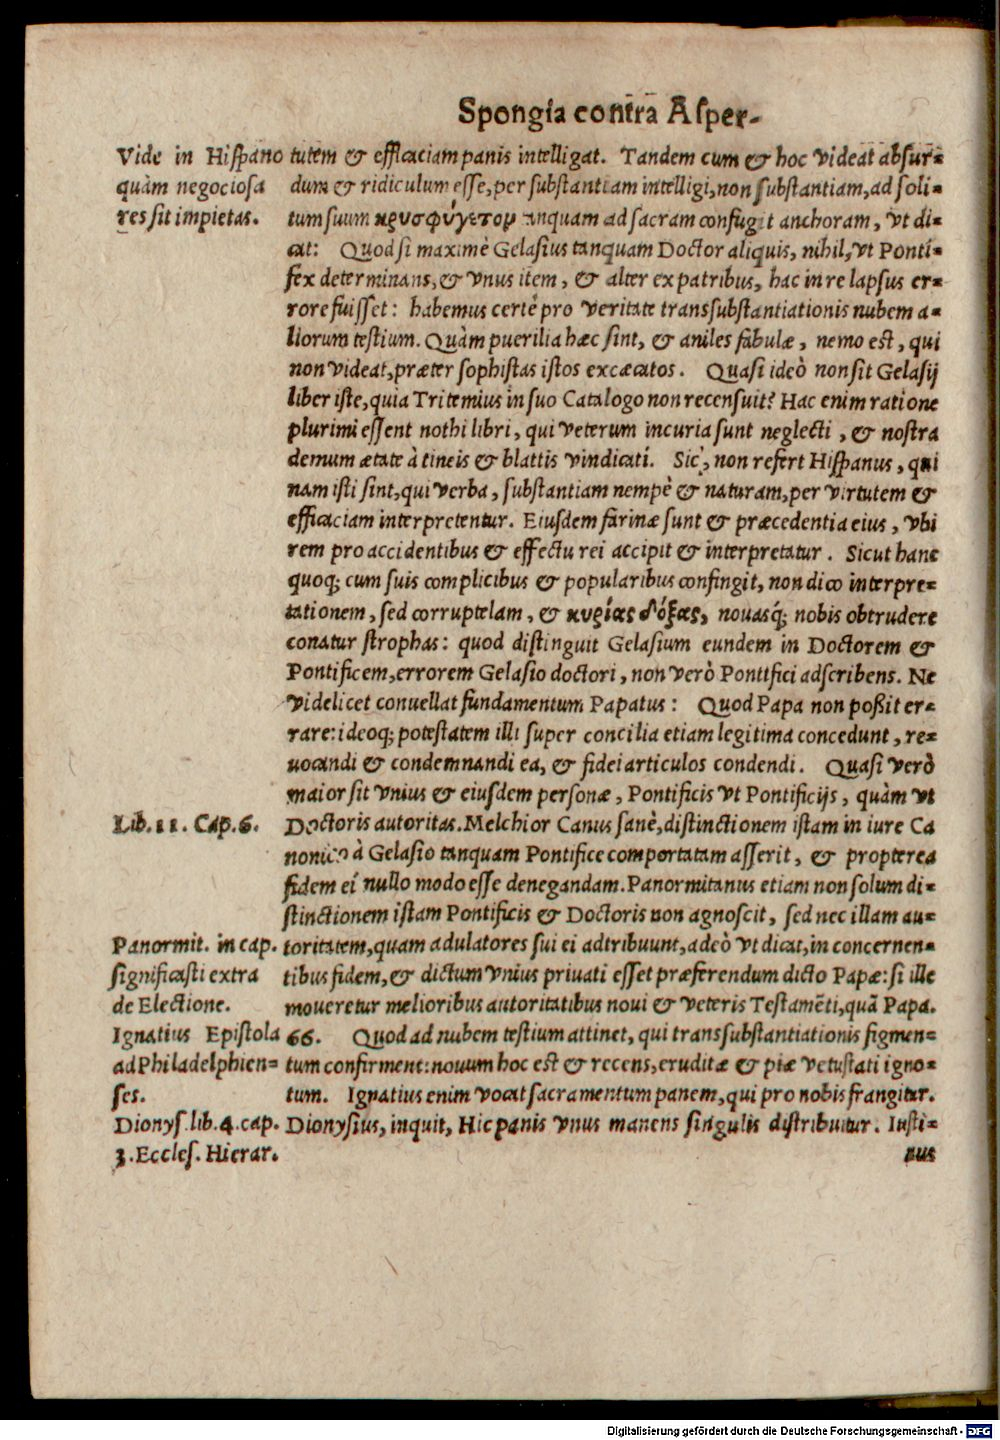 Spongia contra Asper-
Vide in Hispano
quàm negociosa
res sit impietas.
tutem & efficaciam panis intelligat. Tandem cum & hoc videat absur-
dum & ridiculum esse, per substantiam intelligi, non substantiam, ad soli-
tum suum κρυσφύγετον tanquam ad sacram confugit anchoram, vt di-
cat: Quod si maximè Gelasius tanquam Doctor aliquis, nihil, vt Ponti-
fex determinans, & vnus item, & alter ex patribus, hac in re lapsus er-
rore fuisset: habemus certè pro veritate transsubstantiationis nubem a-
liorum testium. Quàm puerilia hæc sint, & aniles fabulæ, nemo est, qui
non videat, præter sophistas istos excæcatos. Quasi ideò non sit Gelasij
liber iste, quia Tritemius in suo Catalogo non recensuit? Hac enim ratione
plurimi essent nothi libri, qui veterum incuria sunt neglecti, & nostra
demum ætate à tineis & blattis vindicati. Sic, non refert Hispanus, qui
nam isti sint, qui verba, substantiam nempè & naturam, per virtutem &
efficaciam interpretentur. Eiusdem farinæ sunt & præcedentia eius, vbi
rem pro accidentibus & effectu rei accipit & interpretatur. Sicut hanc
quoq; cum suis complicibus & popularibus confingit, non dico interpre-
tationem, sed corruptelam, & κυρίας δόξας, nouasq; nobis obtrudere
conatur strophas: quod distinguit Gelasium eundem in Doctorem &
Pontificem, errorem Gelasio doctori, non verò Pontifici adscribens. Ne
videlicet conuellat fundamentum Papatus: Quod Papa non poßit er-
rare: ideoq; potestatem illi super concilia etiam legitima concedunt, re-
uocandi & condemnandi ea, & fidei articulos condendi. Quasi verò
maior sit vnius & eiusdem personæ, Pontificis vt Pontificijs, quàm vt
Lib. 11. Cap. 6.
Doctoris autoritas. Melchior Canus sanè, distinctionem istam in iure Ca
nonico à Gelasio tanquam Pontifice comportatam asserit, & propterea
fidem ei nullo modo esse denegandam. Panormitanus etiam non solum di-
stinctionem istam Pontificis & Doctoris non agnoscit, sed nec illam au-
Panormit. in cap.
significasti extra
de Electione.
toritatem, quam adulatores sui ei adtribuunt, adeò vt dicat, in concernen-
tibus fidem, & dictum vnius priuati esset præferendum dicto Papæ: si ille
moueretur melioribus autoritatibus noui & veteris Testamēti, quā Papa.
Ignatius Epistola
ad Philadelphien-
ses.
66. Quod ad nubem testium attinet, qui transsubstantiationis figmen-
tum confirment: nouum hoc est & recens, eruditæ & piæ vetustati igno-
tum. Ignatius enim vocat sacramentum panem, qui pro nobis frangitur.
Dionys. lib. 4. cap.
3. Eccles. Hierar.
Dionysius, inquit, Hic panis vnus manens singulis distribuitur. Iusti-
nus
Digitalisierung gefördert durch die Deutsche Forschungsgemeinschaft - DFG